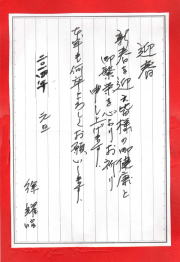 迎春
新春を迎え皆様の御健康と
御繁栄を心よりお祈り
申し上げます。
本年も何卒よろしくお願いします。
二〇二四年 元旦
徐